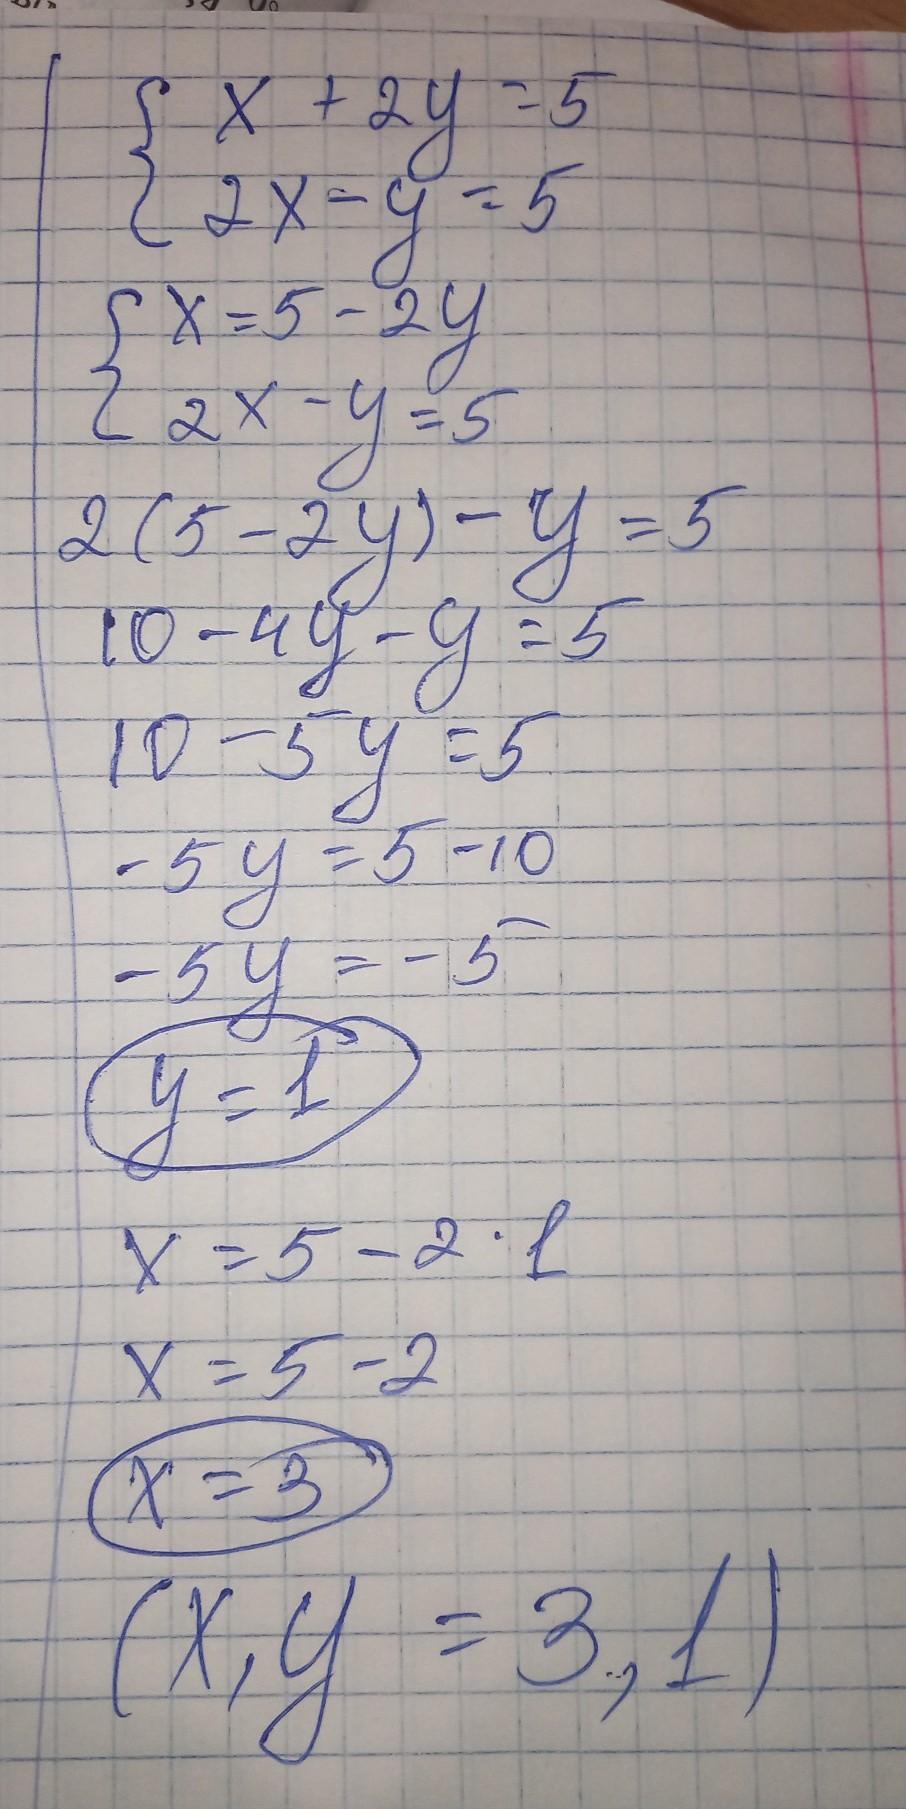 { x + 2y = 5
2x - y = 5
{ x = 5 - 2y
2x - y = 5
2(5 - 2y) - y = 5
10 - 4y - y = 5
10 - 5y = 5
-5y = 5 - 10
-5y = -5
y = 1
x = 5 - 2 · 1
x = 5 - 2
x = 3
(x, y = 3, 1)